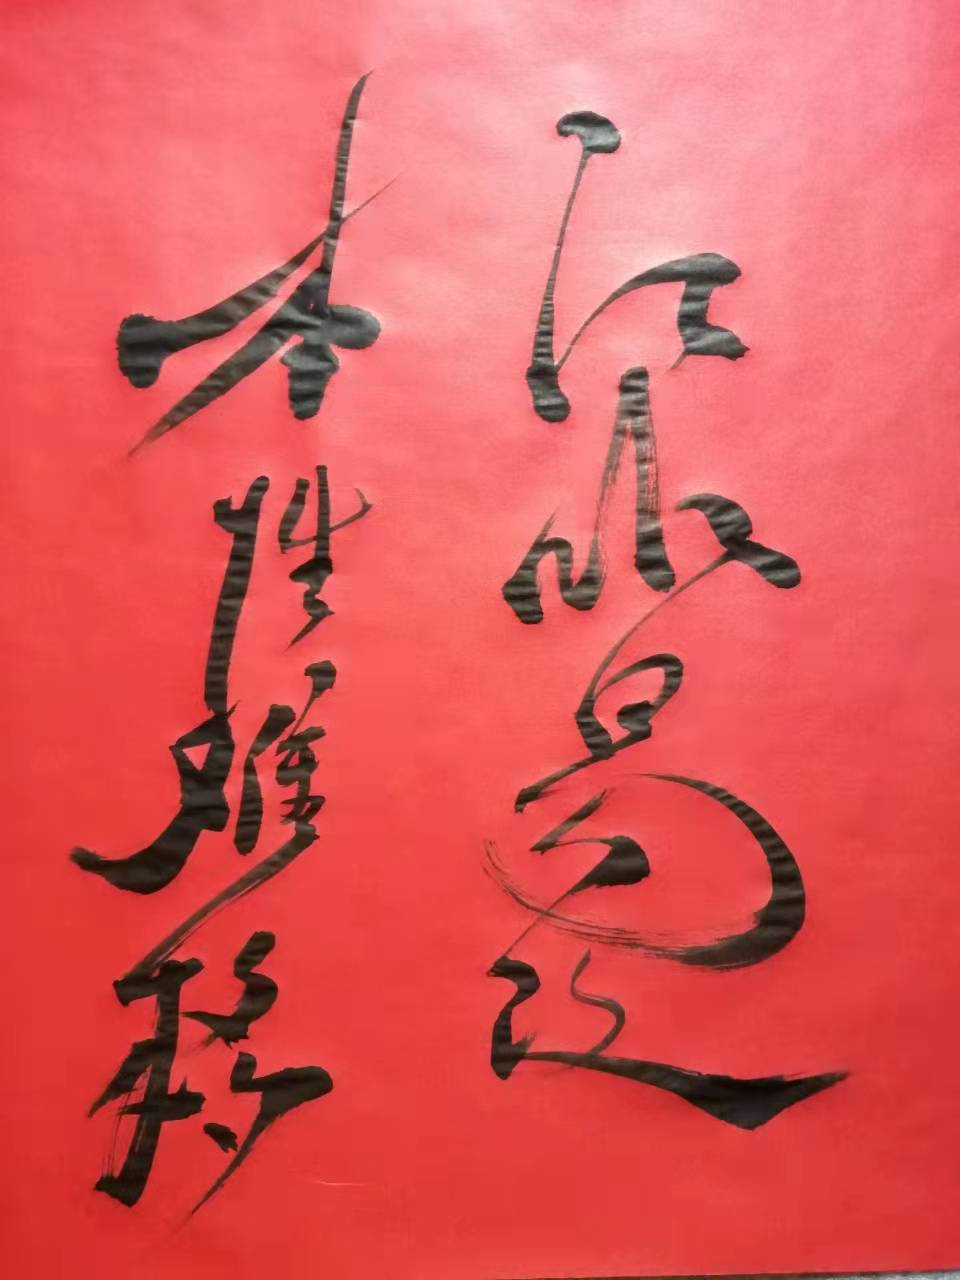 江山易改
本性难移